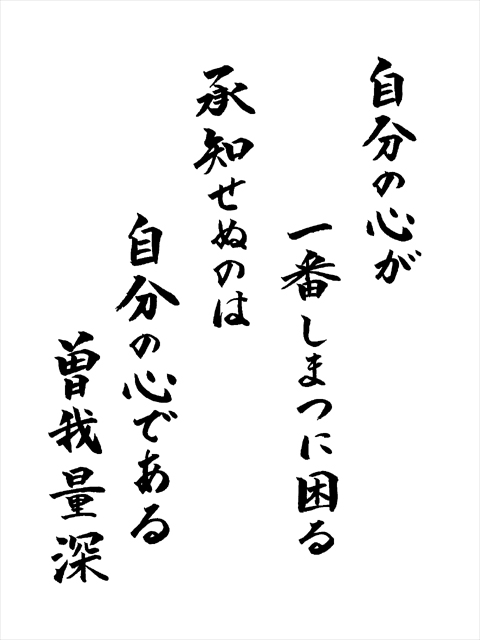 自分の心が
一番しまつに困る
承知せぬのは
自分の心である
曽我量深